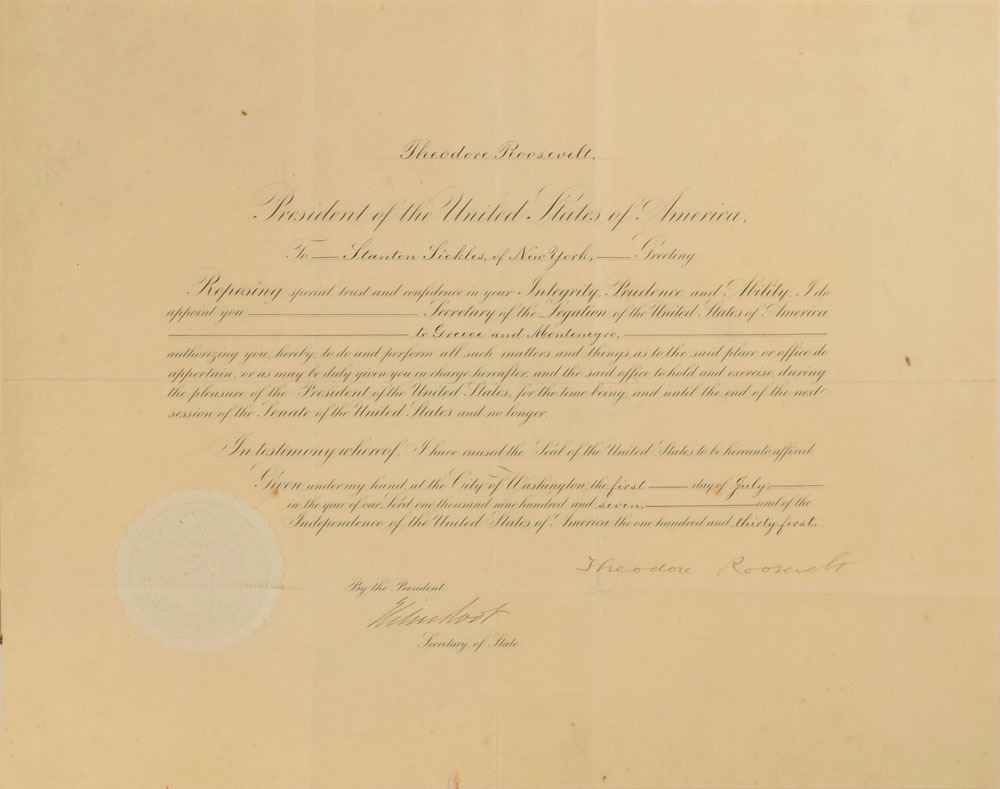 Theodore Roosevelt,
President of the United States of America,
To Stanton Sickles, of New York, Greeting:
Reposing special trust and confidence in your Integrity, Prudence and Ability, I do
appoint you Secretary of the Legation of the United States of America
to Greece and Montenegro,
authorizing you, hereby, to do and perform all such matters and things as to the said place or office do
appertain, or as may be duly given you in charge hereafter, and the said office to hold and exercise, during
the pleasure of the President of the United States, for the time being, and until the end of the next
session of the Senate of the United States and no longer.
In testimony whereof, I have caused the Seal of the United States to be hereunto affixed.
Given under my hand at the City of Washington, the first day of July,
in the year of our Lord one thousand nine hundred and seven, and of the
Independence of the United States of America the one hundred and thirty first.
Theodore Roosevelt
By the President:
Elihu Root
Secretary of State.